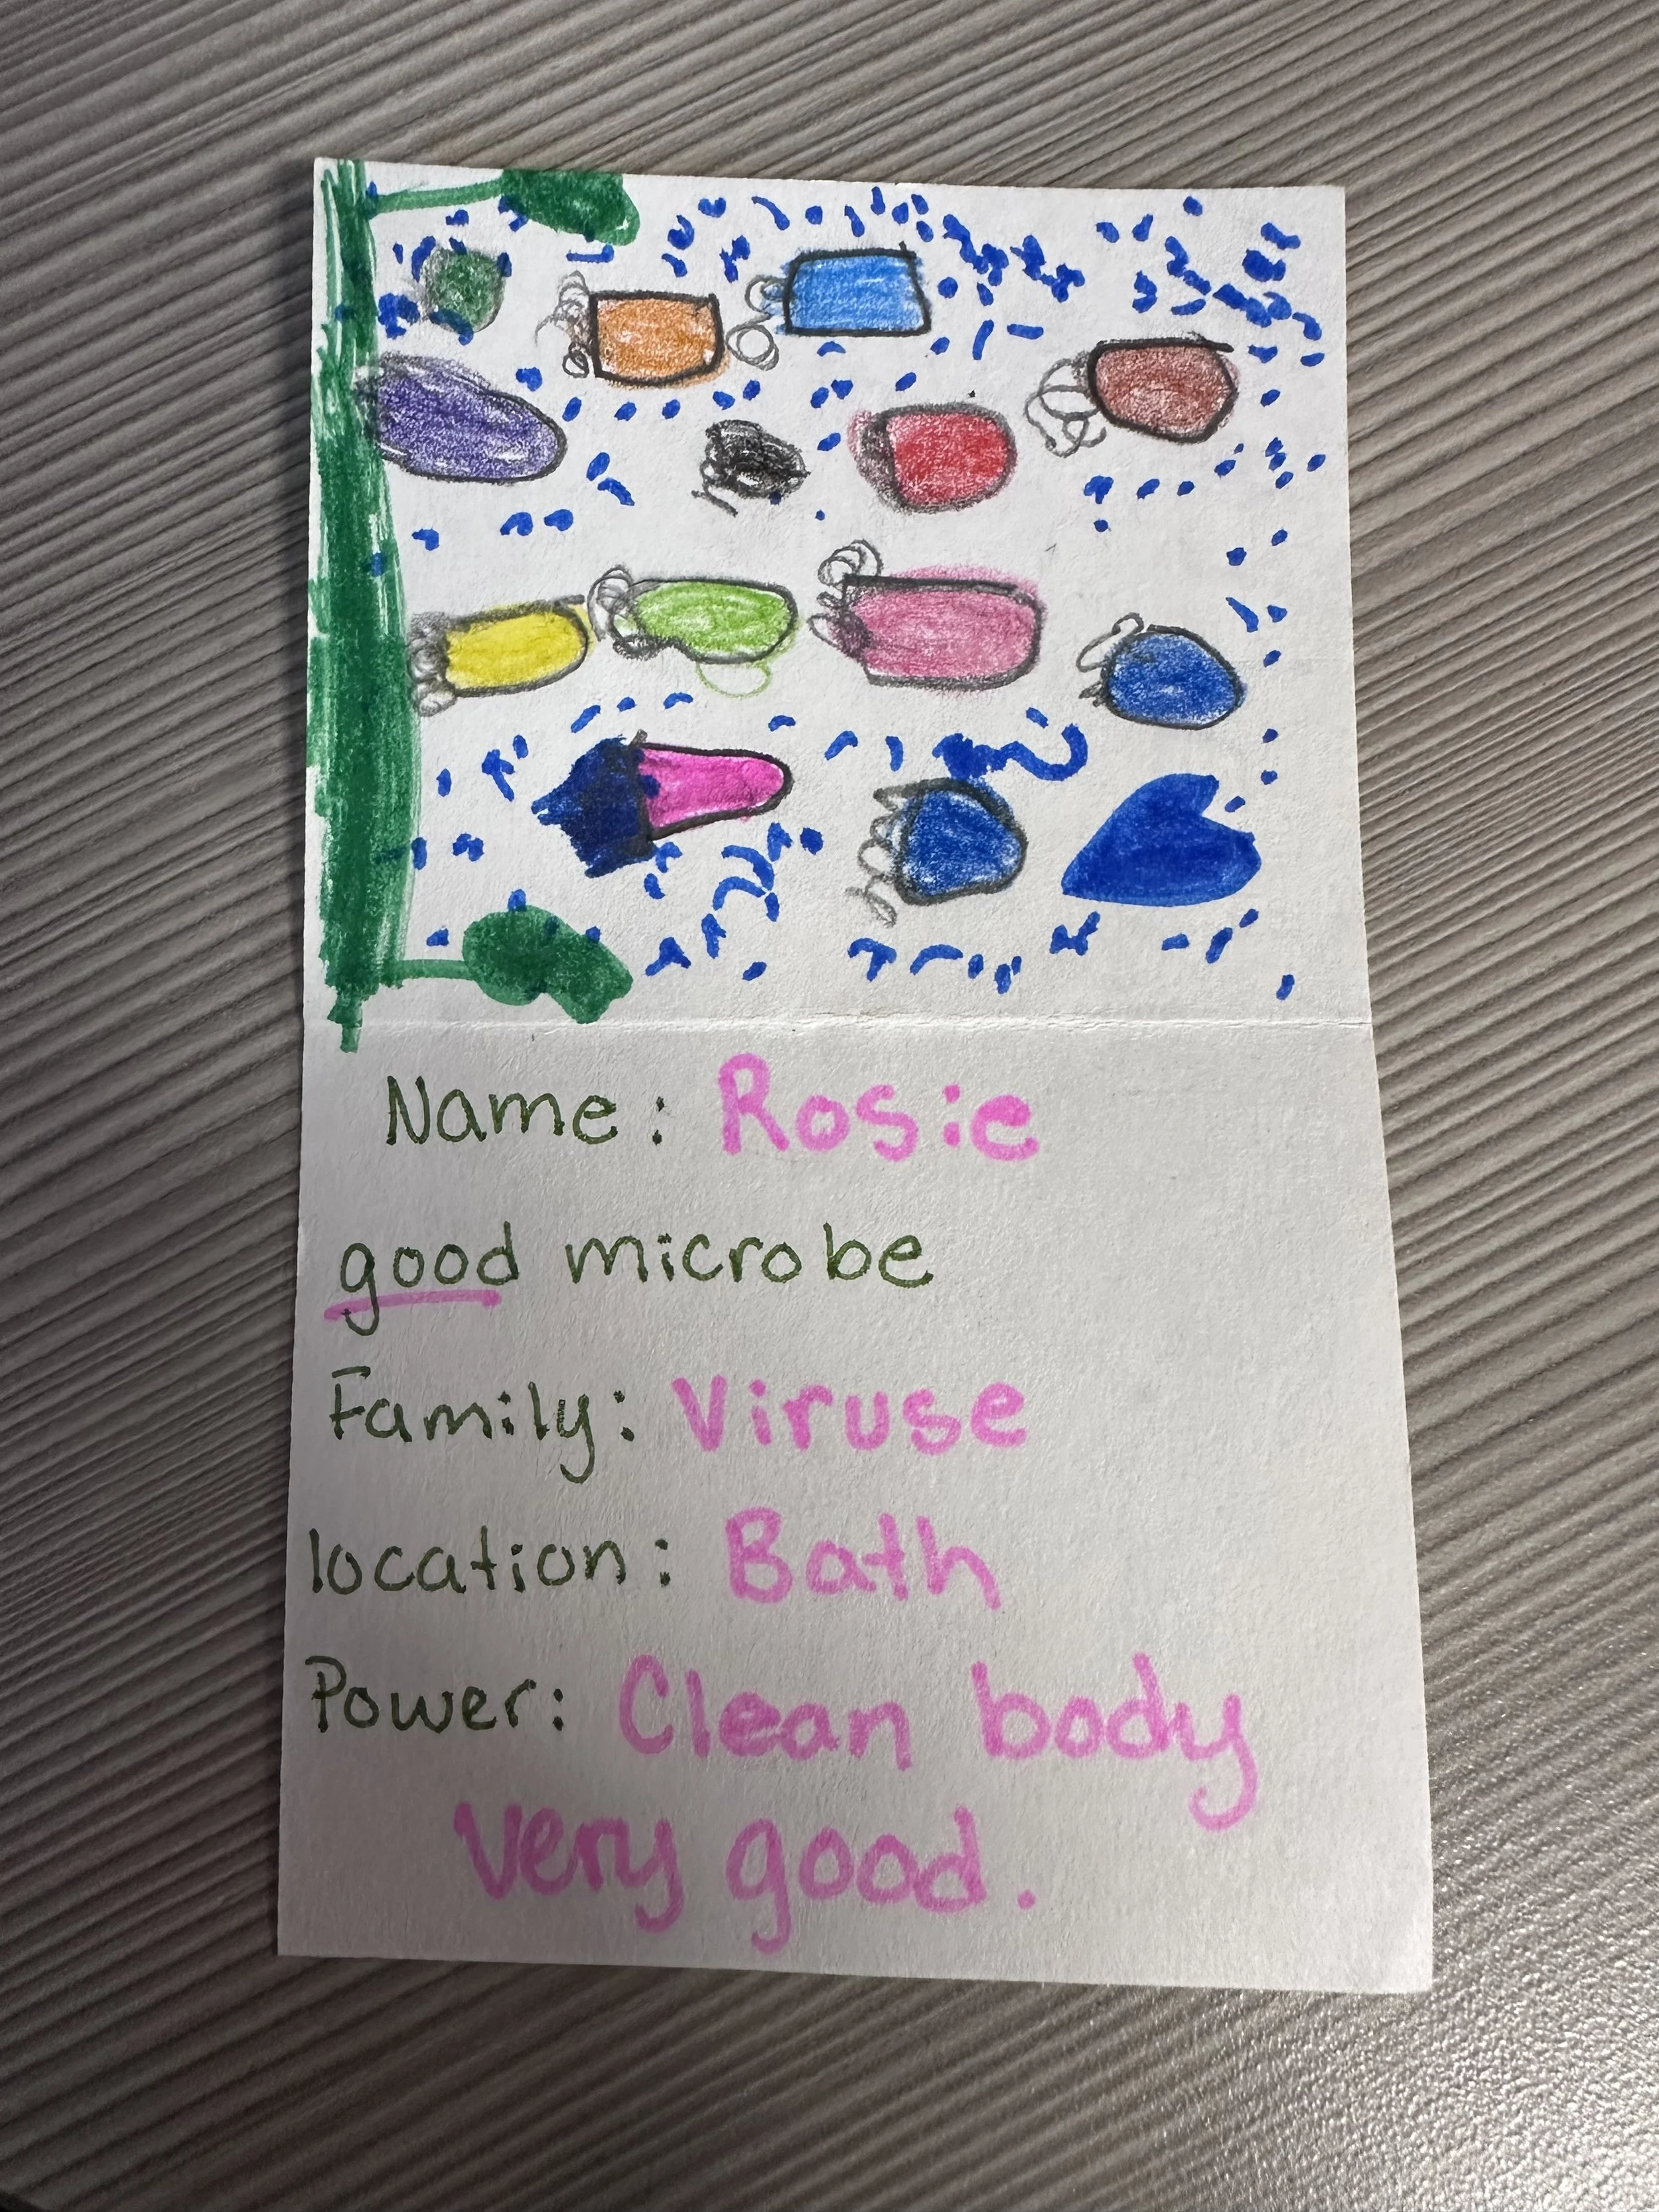 Name: Rosie
good microbe
Family: Viruse
location: Bath
Power: Clean body
very good.